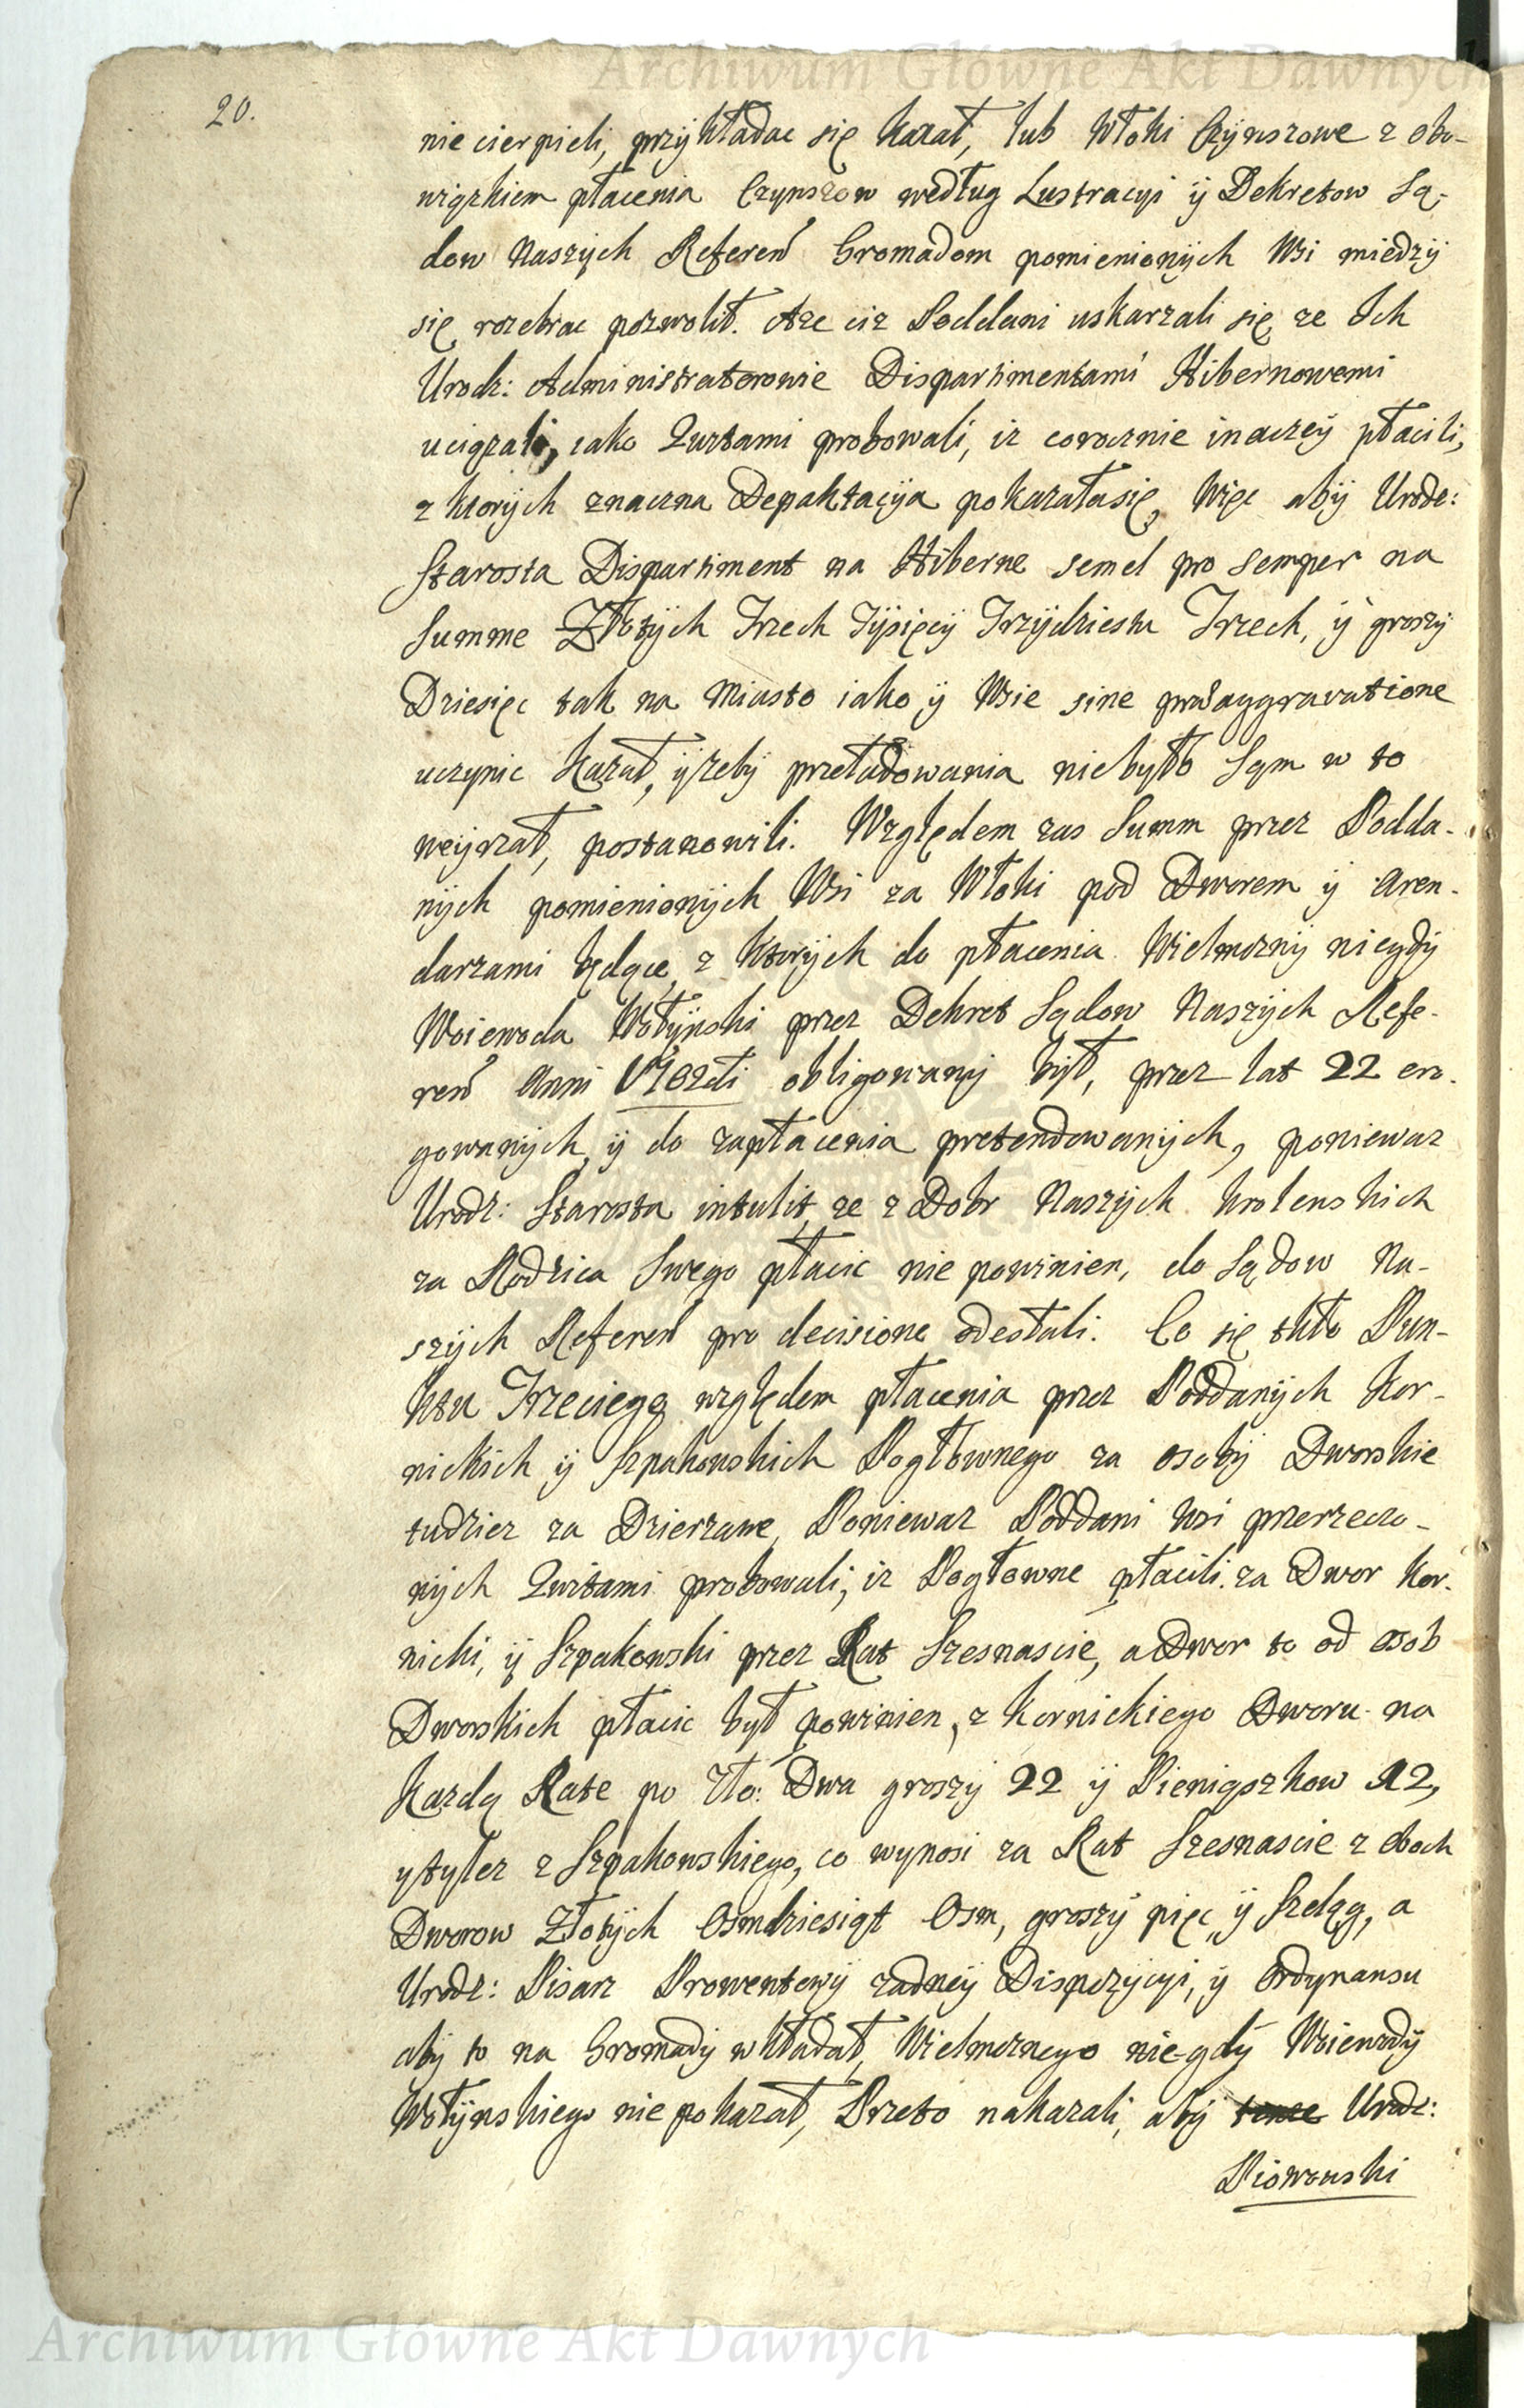 Archiwum Główne Akt Dawnych
20.
nie cierpieli, przykładac się kazał, lub Włoki Czynszowe z obo-
wiązkiem płacenia Czynszow według Lustracyi ÿ Dekretow Są-
dow Naszych Referen Gromadom pomienionych Wsi miedzy
się rozebrac pozwolił. Aze ciz Poddani uskarzali się ze Ich
Urodz: Administratorowie Dispartimentami Hibernowemi
uciązali, iako Quitami probowali, iz corocznie inaczey płacili,
z ktorych znaczna Depaktacyia pokazałasię, Więc aby Urodz:
Starosta Dispartiment na Hiberne semel pro semper na
Summe Złotych Trzech Tysięcy Trzydziestu Trzech, ÿ groszy
Dziesięc tak na Miasto iako ÿ Wsie sine praeaggravatione
uczynic kazał, ÿzeby przeładowania niebyło Sąm w to
weyrzał, postanowili. Względem zas Summ przez Podda-
nych pomienionych Wsi za Włoki pod Dworem ÿ Aren-
darzami będące, z ktorych do płacenia Wielmozny niegdy
Woiewoda Wołynski przez Dekret Sądow Naszych Refe-
ren Anni 1762di obligowany był, przez lat 22 ero-
gowanych, ÿ do zapłacenia pretendowanych, poniewaz
Urodz: Starosta intulit, ze z Dobr Naszych Krolewskich
za Rodzica Swego płacic nie powinien, do Sądow Na-
szych Referen pro decisione odesłali. Co się tkło Pun-
ktu Trzeciego względem płacenia przez Poddanych Kor-
nickich ÿ Szpakowskich Pogłownego za osoby Dworskie
tudziez za Dzierzawe, Poniewaz Poddani Wsi przerzeczo-
nych Quitami probowali, iz Pogłowne płacili za Dwor Kor-
nicki, ÿ Szpakowski przez Rat Szesnascie, a Dwor to od osob
Dworskich płacic był powinien, z Kornickiego Dworu na
Kazdą Rate po Zło: Dwa groszy 22 ÿ Pieniązkow 12,
ytylez z Szpakowskiego, co wynosi za Rat Szesnascie z oboch
Dworow Złotych Osmdziesiąt Osm, groszy pięc ÿ Szeląg, a
Urodz: Pisarz Prowentowy zadney Dispozycyi, ÿ Ordynansu
aby to na Gromady wkładał, Wielmoznego niegdy Woiewody
Wołynskiego nie pokazał, Przeto nakazali, aby Urodz:
Piowonski
Archiwum Główne Akt Dawnych